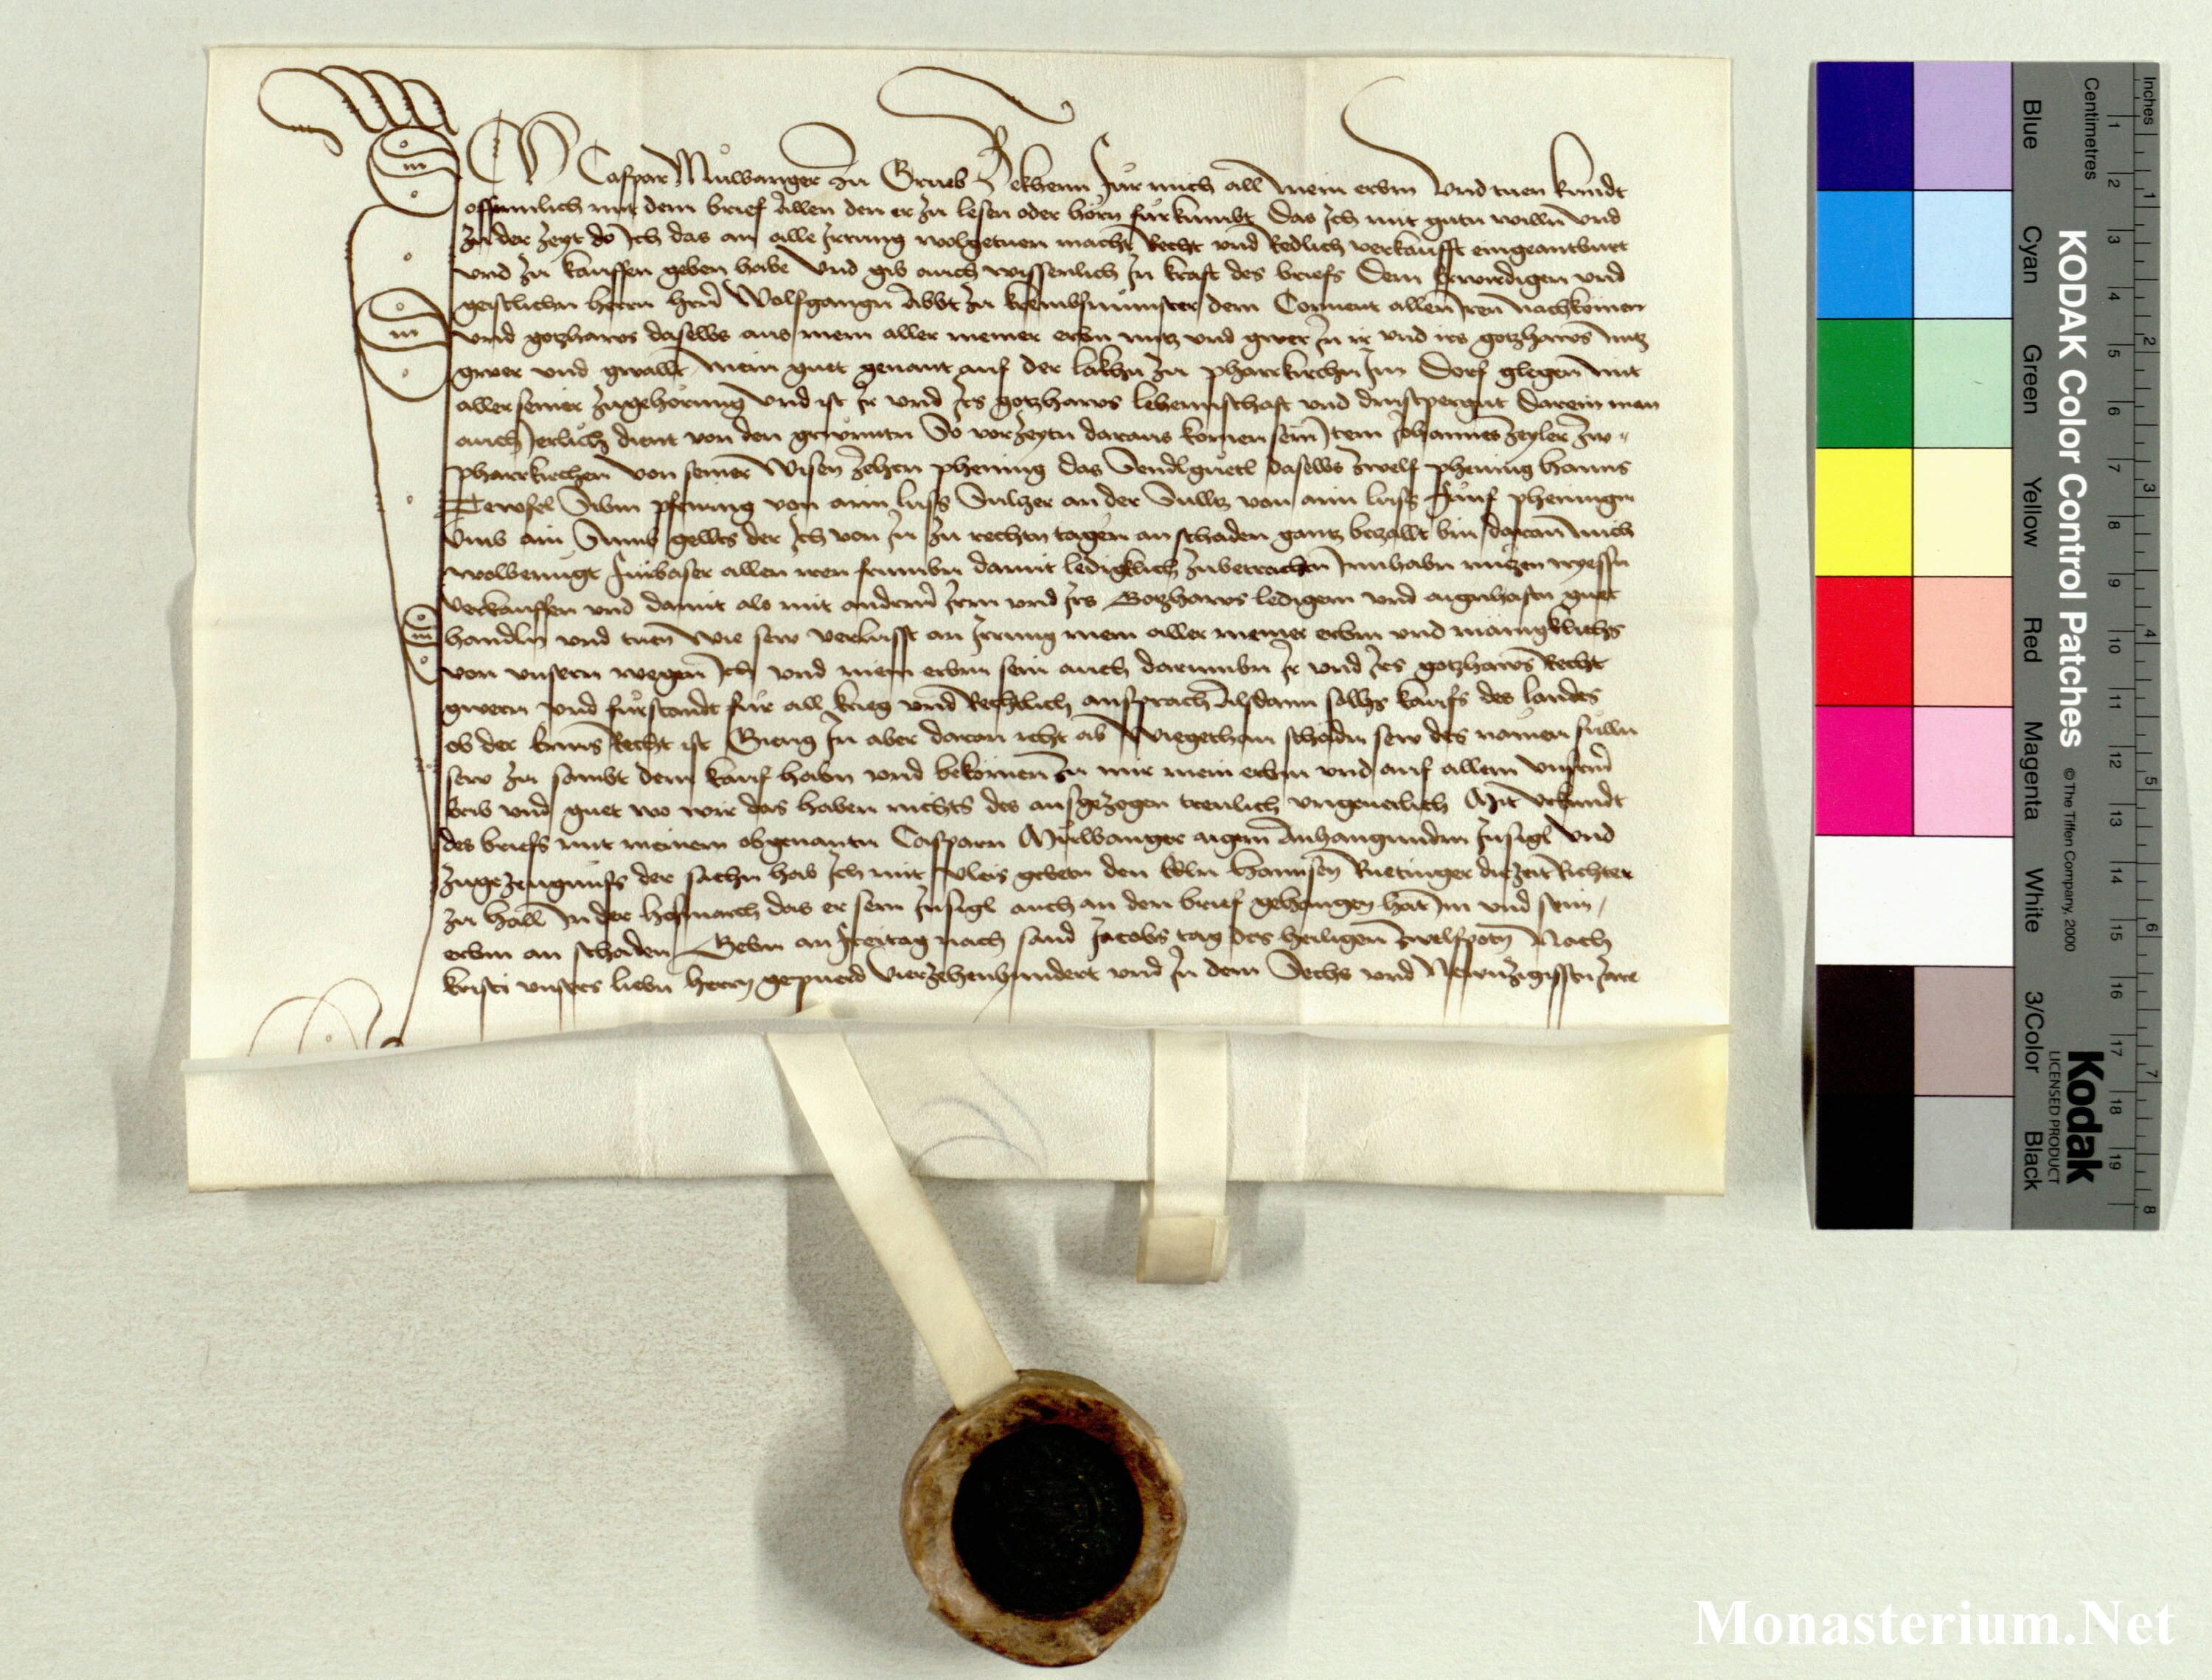 Ich Caspar Müllwanger zu Grueb Bekhenn Für mich all mein erbm Vnd tuen kundt
offennlich mit dem brief Allen den er zu lesen oder hörn fürkumbt Das Ich mit gutn willn Vnd
zu der zeyt do Ich das an alle Irrung wolgetuen macht Recht vnd Redlich verkaufft eingeantburt
vnd zu kauffen geben habe Vnd gib auch wissenlich In kraft des briefs Dem Erwirdigen vnd
geistlichn herrn hern Wolfgangn Abbt zu krembsmünster dem Conuent allen Iren Nachkomen
vnd gotzhaws daselbs aus mein aller meiner erbn nutz vnd gwer In ir vnd irs gotzhaws nutz
gwer vnd gwallt Mein guet genant auf der lakhn zu pharrkirchn Im Dorf glegen mit
aller seiner zugehörung Vnd ist Ir vnd Irs gotzhaws lehennschaft vnd dinstpergut Darein man
auch Jerlich dient von den grünntn So vorzeytn daraus komen sein Item Johannes zeyler zw
pharrkirchen Von seiner Wisen zehen phening das Sendlguetl daselbs zwelf phening hanns
Tewfel Sibm pfening von aim luss Sulzer an der Sulltz von aim luss Fünf pheningn
Vmb ain Summ gellts der Ich von In zu rechtn tagen an schaden gantz betzallt bin daran mich
wolbenügt Fürbaser allen iren frumbn damit ledigklich zubetrachten Innhabn nutzen nyessn
Verkauffen vnd damit als mit anderm Irm vnd Irs Gotzhaws ledigem vnd aigenhaftn guet
handln vnd tuen Wie sew verlusst an Irrung mein aller meiner erbm vnd mainigklichs
von vnsern wegen Ich vnd mein erbm sein auch darumbn Ir vnd Irs gotzhaws Recht
gwern vnd fürstandt für all krieg vnd Rechtlich ansprach Alsdann solhs kaufs des landes
ob der Enns Recht ist Gieng In aber daran icht ab Wiegethan schadn sew des namen sulln
sew zu sambt dem kauf habn vnd bekomen zu mir mein erbm vnd auf allem Vnserm
hab vnd guet wo wir das haben nichts des ausgezogen trewlich vngeuerlich Mit Vrkundt
des briefs mit meinem obgenantn Casparn Mülwanger aigem Anhangundm Insigl Vnd
zugezeugnuss der sachn hab Ich mit Vleis gebetn den Edln hannsen Ruetinger die zeit Richter
zu hall In der hofmarch das er sein Insigl auch an den brief gehangen hat Im vnd sein
erbm an schaden Gebm an Freitag nach sand Jacobs tag des heiligen zwelfpotn Nach
kristi vnsers liebn herrn gepuerd Vierzehenhundert vnd In dem Sechs vnd Newnzigisstn Jare
KODAK Color Control Patches
© The Tiffen Company, 2000
Kodak
LICENSED PRODUCT
Blue
Cyan
Green
Yellow
Red
Magenta
White
3/Color
Black
Centimetres
1 2 3 4 5 6 7 8 9 10 11 12 13 14 15 16 17 18 19
Inches
1 2 3 4 5 6 7 8
Monasterium.Net